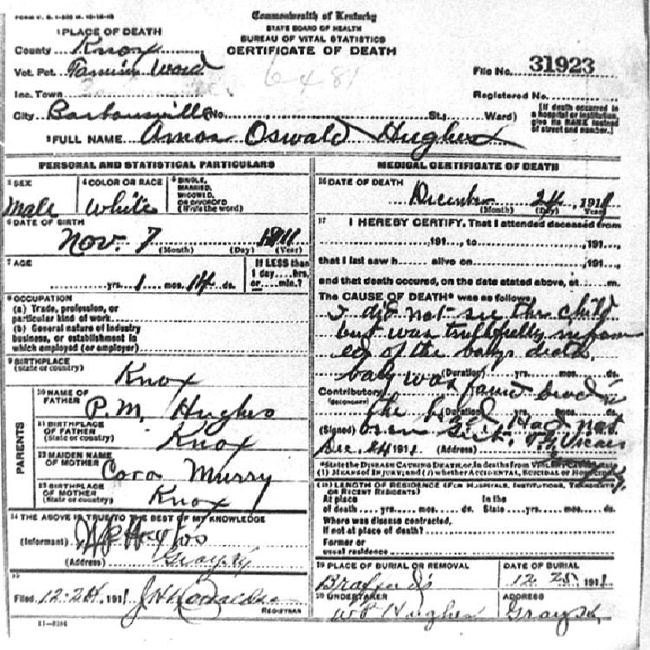 FORM V. S.
Commonwealth of Kentucky
STATE BOARD OF HEALTH
BUREAU OF VITAL STATISTICS
CERTIFICATE OF DEATH
1 PLACE OF DEATH
County Knox
Vot. Pct. Ward
6481
File No. 31923
Inc. Town
Registered No.
City Barbourville (No. St.; Ward)
[If death occurred in a hospital or institution, give its NAME instead of street and number.]
2 FULL NAME Amos Oswald Hughes
PERSONAL AND STATISTICAL PARTICULARS
3 SEX
Male
4 COLOR OR RACE
White
5 SINGLE, MARRIED, WIDOWED, OR DIVORCED
(Write the word)
6 DATE OF BIRTH
Nov. 7 1911
(Month) (Day) (Year)
7 AGE
yrs. 1 mos. 14 ds.
If LESS than 1 day....hrs. or....min.?
8 OCCUPATION
(a) Trade, profession, or particular kind of work
(b) General nature of industry business, or establishment in which employed (or employer)
9 BIRTHPLACE
(State or country)
Knox
PARENTS
10 NAME OF FATHER
P.M. Hughes
11 BIRTHPLACE OF FATHER
(State or country)
Knox
12 MAIDEN NAME OF MOTHER
Cora Murry
13 BIRTHPLACE OF MOTHER
(State or country)
Knox
14 THE ABOVE IS TRUE TO THE BEST OF MY KNOWLEDGE
(Informant)
(Address) Gray Ky
15
Filed 12-24, 1911 J H
REGISTRAR
MEDICAL CERTIFICATE OF DEATH
16 DATE OF DEATH
December 24, 1911
(Month) (Day) (Year)
17 I HEREBY CERTIFY, That I attended deceased from
, 191 , to , 191 ,
that I last saw h alive on , 191 ,
and that death occured, on the date stated above, at m.
The CAUSE OF DEATH* was as follows:
I did not see the child
but was truthfully inform
ed of the babys death.
baby was found dead in
(Duration) yrs. mos. ds.
Contributory
(SECONDARY)
the bed Had not
(Duration) yrs. mos. ds.
(Signed) been sick.
Dec. 24 1911 (Address)
*State the DISEASE CAUSING DEATH, or, in deaths from VIOLENT CAUSES, state (1) MEANS OF INJURY; and (2) whether ACCIDENTAL, SUICIDAL or HOMICIDAL
18 LENGTH OF RESIDENCE (FOR HOSPITALS, INSTITUTIONS, TRANSIENTS, OR RECENT RESIDENTS)
At place of death yrs. mos. ds.
In the State yrs. mos. ds.
Where was disease contracted, if not at place of death?
Former or usual residence
19 PLACE OF BURIAL OR REMOVAL
DATE OF BURIAL
12 25, 1911
20 UNDERTAKER
W P Hughes
ADDRESS
Gray Ky